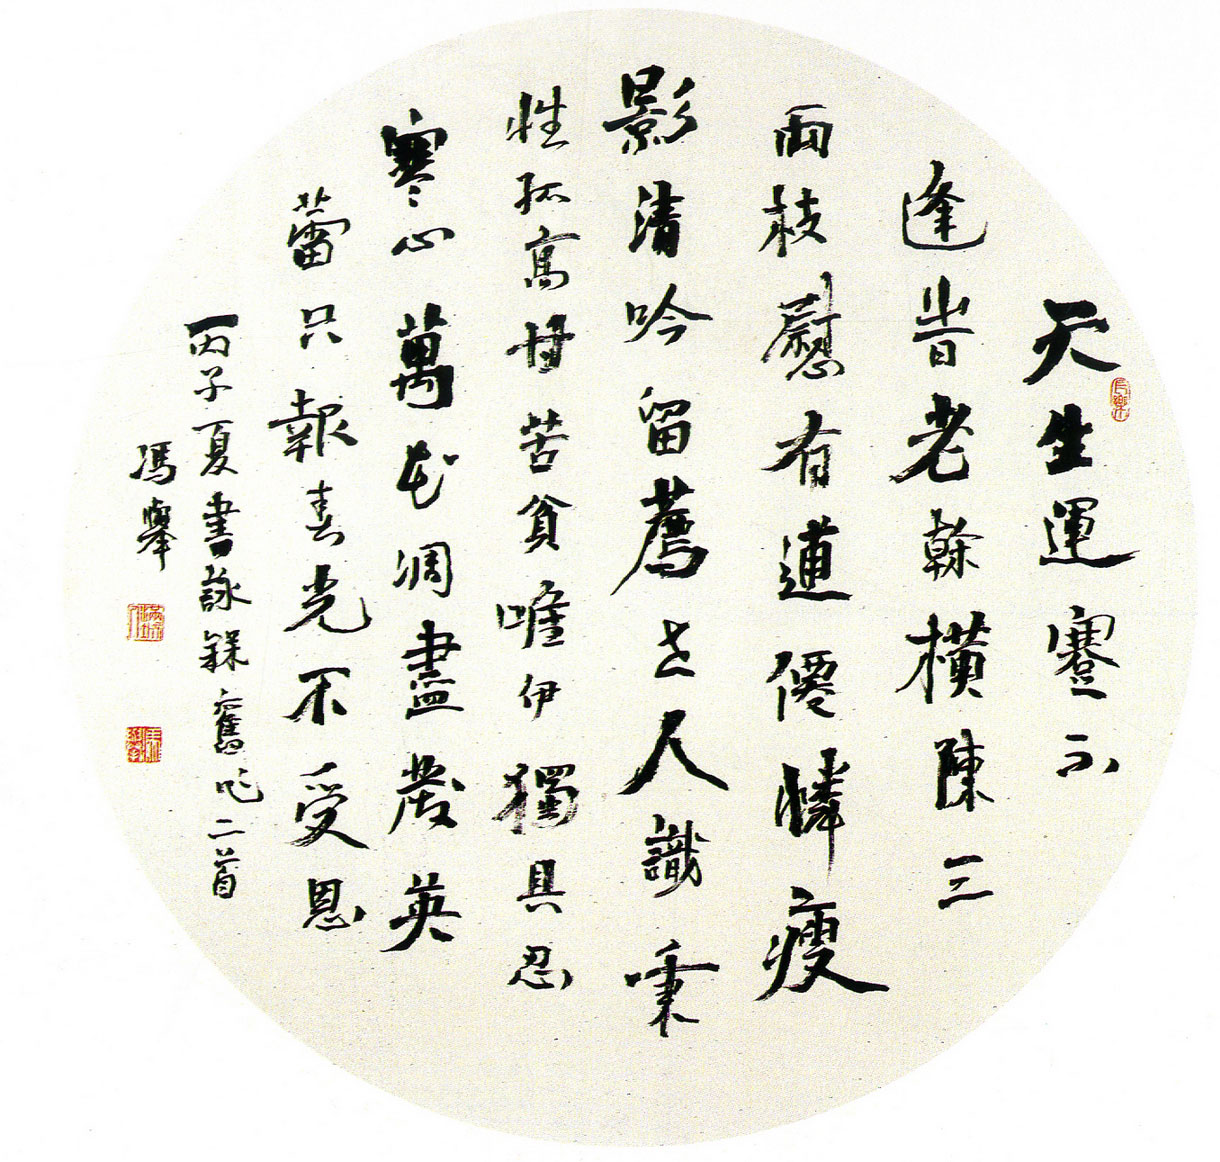 天生運蹇不
逢旹老榦橫陳三
兩枝慰有逋僊憐瘦
影清吟留薦世人識秉
性孤高甘苦貧唯伊獨具忍
寒心萬花凋盡發英
蕾只報春光不受恩
丙子夏書詠楳舊作二首
馮舉
長樂